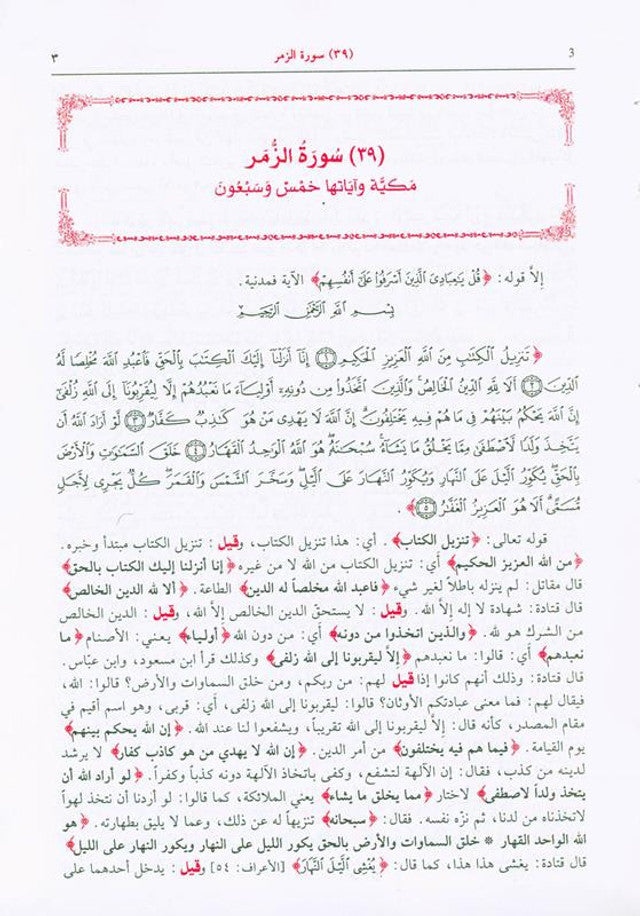 ٣ (٣٩) سورة الزمر 3
(٣٩) سُورَةُ الزُّمَر
مَكيَّة وآيَاتها خمْسٌ وَسَبْعُونَ
إلاَّ قوله: ﴿قُلْ يَٰعِبَادِىَ ٱلَّذِينَ أَسْرَفُوا۟ عَلَىٰٓ أَنفُسِهِمْ﴾ الآية فمدنية.
بِسْمِ ٱللَّهِ ٱلرَّحْمَٰنِ ٱلرَّحِيمِ
﴿تَنزِيلُ ٱلْكِتَٰبِ مِنَ ٱللَّهِ ٱلْعَزِيزِ ٱلْحَكِيمِ ۝١ إِنَّآ أَنزَلْنَآ إِلَيْكَ ٱلْكِتَٰبَ بِٱلْحَقِّ فَٱعْبُدِ ٱللَّهَ مُخْلِصًا لَّهُ
ٱلدِّينَ ۝٢ أَلَا لِلَّهِ ٱلدِّينُ ٱلْخَالِصُ وَٱلَّذِينَ ٱتَّخَذُوا۟ مِن دُونِهِۦٓ أَوْلِيَآءَ مَا نَعْبُدُهُمْ إِلَّا لِيُقَرِّبُونَآ إِلَى ٱللَّهِ زُلْفَىٰٓ
إِنَّ ٱللَّهَ يَحْكُمُ بَيْنَهُمْ فِى مَا هُمْ فِيهِ يَخْتَلِفُونَ إِنَّ ٱللَّهَ لَا يَهْدِى مَنْ هُوَ كَٰذِبٌ كَفَّارٌ ۝٣ لَّوْ أَرَادَ ٱللَّهُ أَن
يَتَّخِذَ وَلَدًا لَّٱصْطَفَىٰ مِمَّا يَخْلُقُ مَا يَشَآءُ سُبْحَٰنَهُۥ هُوَ ٱللَّهُ ٱلْوَٰحِدُ ٱلْقَهَّارُ ۝٤ خَلَقَ ٱلسَّمَٰوَٰتِ وَٱلْأَرْضَ
بِٱلْحَقِّ يُكَوِّرُ ٱلَّيْلَ عَلَى ٱلنَّهَارِ وَيُكَوِّرُ ٱلنَّهَارَ عَلَى ٱلَّيْلِ وَسَخَّرَ ٱلشَّمْسَ وَٱلْقَمَرَ كُلٌّ يَجْرِى لِأَجَلٍ
مُّسَمًّى أَلَا هُوَ ٱلْعَزِيزُ ٱلْغَفَّٰرُ ۝٥﴾.
قوله تعالى: ﴿تنزيل الكتاب﴾. أي: هذا تنزيل الكتاب، وقيل: تنزيل الكتاب مبتدأ وخبره.
﴿من الله العزيز الحكيم﴾ أي: تنزيل الكتاب من الله لا من غيره ﴿إنا أنزلنا إليك الكتاب بالحق﴾
قال مقاتل: لم ينزله باطلاً لغير شيء ﴿فاعبد الله مخلصاً له الدين﴾ الطاعة. ﴿ألا لله الدين الخالص﴾
قال قتادة: شهادة لا إله إلاَّ الله. وقيل: لا يستحقّ الدين الخالص إلاَّ الله، وقيل: الدين الخالص
من الشرك هو لله. ﴿والذين اتخذوا من دونه﴾ أي: من دون الله ﴿أولياء﴾ يعني: الأصنام ﴿ما
نعبدهم﴾ أي: قالوا: ما نعبدهم ﴿إلاَّ ليقربونا إلى الله زلفى﴾ وكذلك قرأ ابن مسعود، وابن عبّاس.
قال قتادة: وذلك أنهم كانوا إذا قيل لهم: من ربكم، ومن خلق السماوات والأرض؟ قالوا: الله،
فيقال لهم: فما معنى عبادتكم الأوثان؟ قالوا: ليقربونا إلى الله زلفى، أي: قربى، وهو اسم أقيم في
مقام المصدر، كأنه قال: إلاَّ ليقربونا إلى الله تقريباً، ويشفعوا لنا عند الله. ﴿إن الله يحكم بينهم﴾
يوم القيامة. ﴿فيما هم فيه يختلفون﴾ من أمر الدين. ﴿إن الله لا يهدي من هو كاذب كفار﴾ لا يرشد
لدينه من كذب، فقال: إن الآلهة لتشفع، وكفى باتخاذ الآلهة دونه كذباً وكفراً. ﴿لو أراد الله أن
يتخذ ولداً لاصطفى﴾ لاختار ﴿مما يخلق ما يشاء﴾ يعني الملائكة، كما قالوا: لو أردنا أن نتخذ لهواً
لاتخذناه من لدنا، ثم نزّه نفسه. فقال: ﴿سبحانه﴾ تنزيهاً له عن ذلك، وعما لا يليق بطهارته. ﴿هو
الله الواحد القهار * خلق السماوات والأرض بالحق يكور الليل على النهار ويكور النهار على الليل﴾
قال قتادة: يغشى هذا هذا، كما قال: ﴿يُغْشِى ٱلَّيْلَ ٱلنَّهَارَ﴾ [الأعراف: ٥٤] وقيل: يدخل أحدهما على